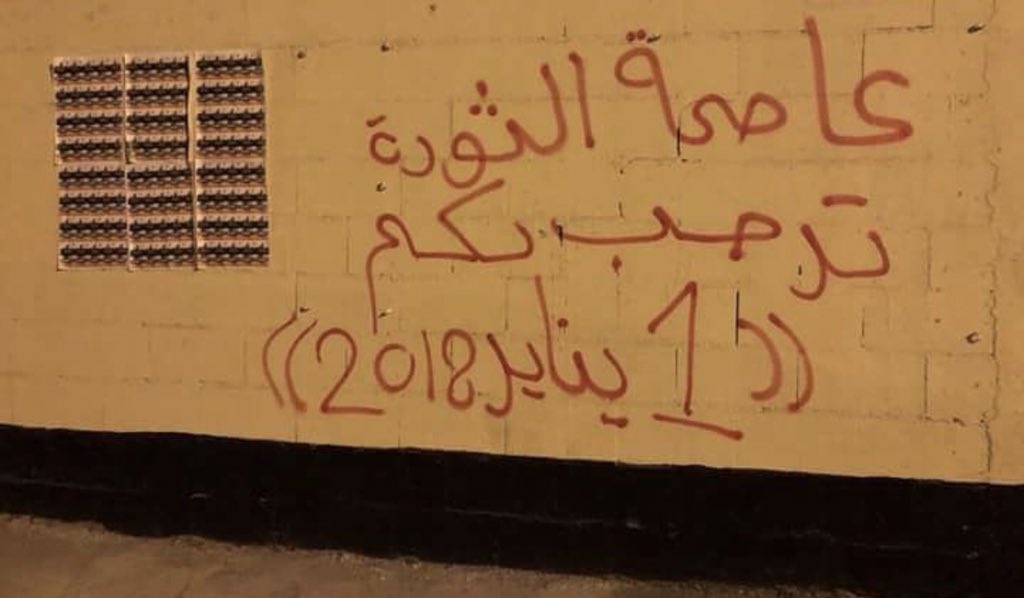 عاصمة الثورة
ترحب بكم
((1 يناير 2018))